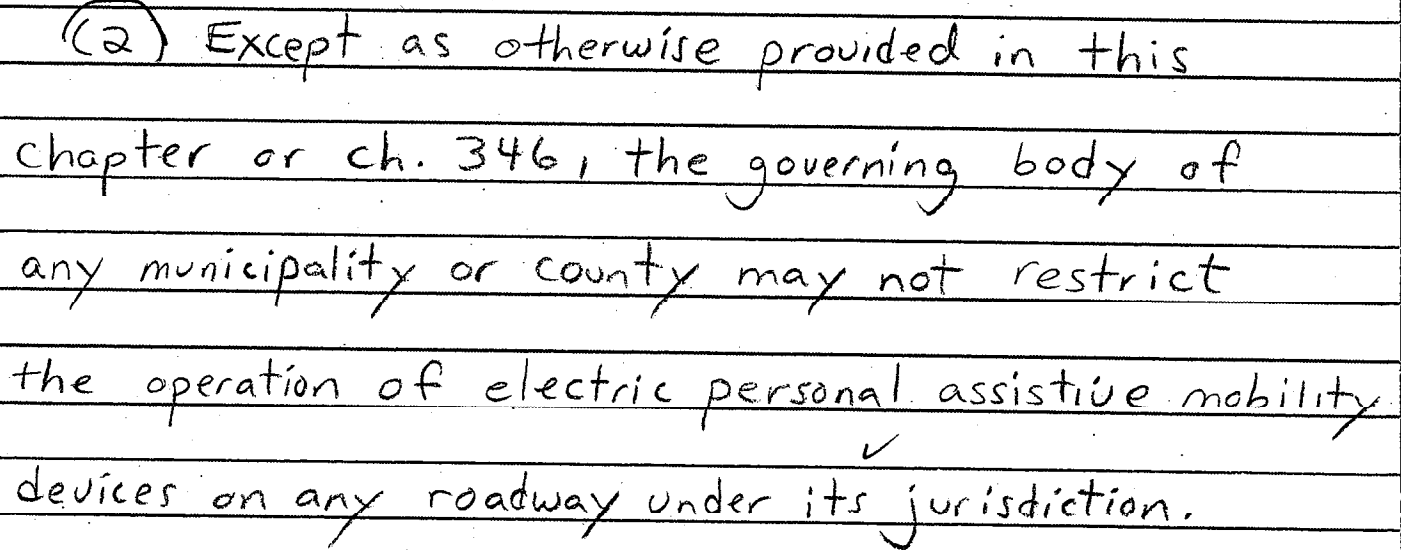 (2) Except as otherwise provided in this
chapter or ch. 346, the governing body of
any municipality or county may not restrict
the operation of electric personal assistive mobility
devices on any roadway under its jurisdiction.